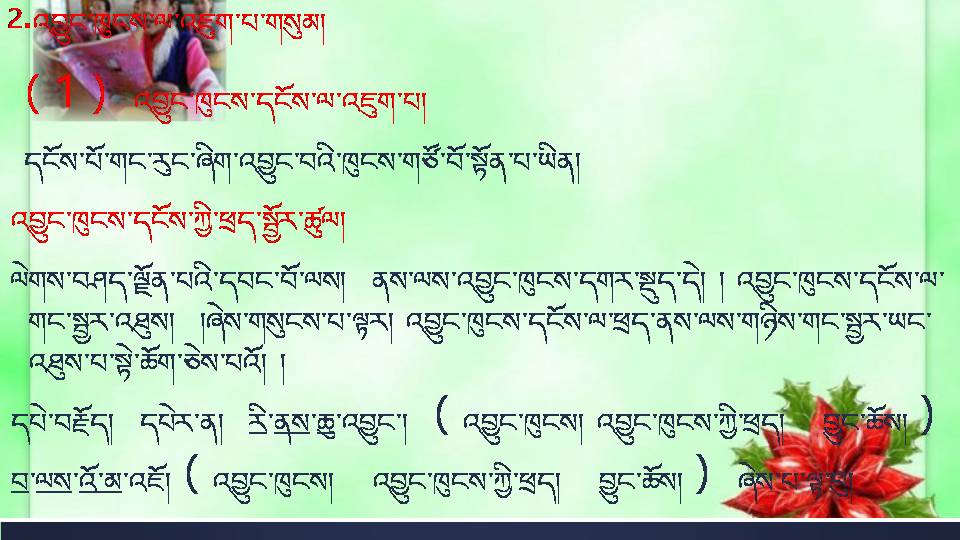 2.འབྱུང་ཁུངས་ལ་འཇུག་པ་གསུམ།
( 1 ) འབྱུང་ཁུངས་དངོས་ལ་འཇུག་པ།
དངོས་པོ་གང་རུང་ཞིག་འབྱུང་བའི་ཁུངས་གཙོ་བོ་སྟོན་པ་ཡིན།
འབྱུང་ཁུངས་དངོས་ཀྱི་ཕྲད་སྦྱོར་ཚུལ།
ལེགས་བཤད་ལྗོན་པའི་དབང་བོ་ལས། ནས་ལས་འབྱུང་ཁུངས་དགར་སྡུད་དེ། །འབྱུང་ཁུངས་དངོས་ལ་
གང་སྦྱར་འཐུས། །ཞེས་གསུངས་པ་ལྟར། འབྱུང་ཁུངས་དངོས་ལ་ཕྲད་ནས་ལས་གཉིས་གང་སྦྱར་ཡང་
འཐུས་པ་སྟེ་ཆོག་ཅེས་པའོ། །
དཔེ་བརྗོད། དཔེར་ན། རི་ནས་ཆུ་འབྱུང་། ( འབྱུང་ཁུངས། འབྱུང་ཁུངས་ཀྱི་ཕྲད། བྱུང་ཆོས། )
བ་ལས་འོ་མ་འཇོ། ( འབྱུང་ཁུངས། འབྱུང་ཁུངས་ཀྱི་ཕྲད། བྱུང་ཆོས། ) ཞེས་པ་ལྟ་བུ།